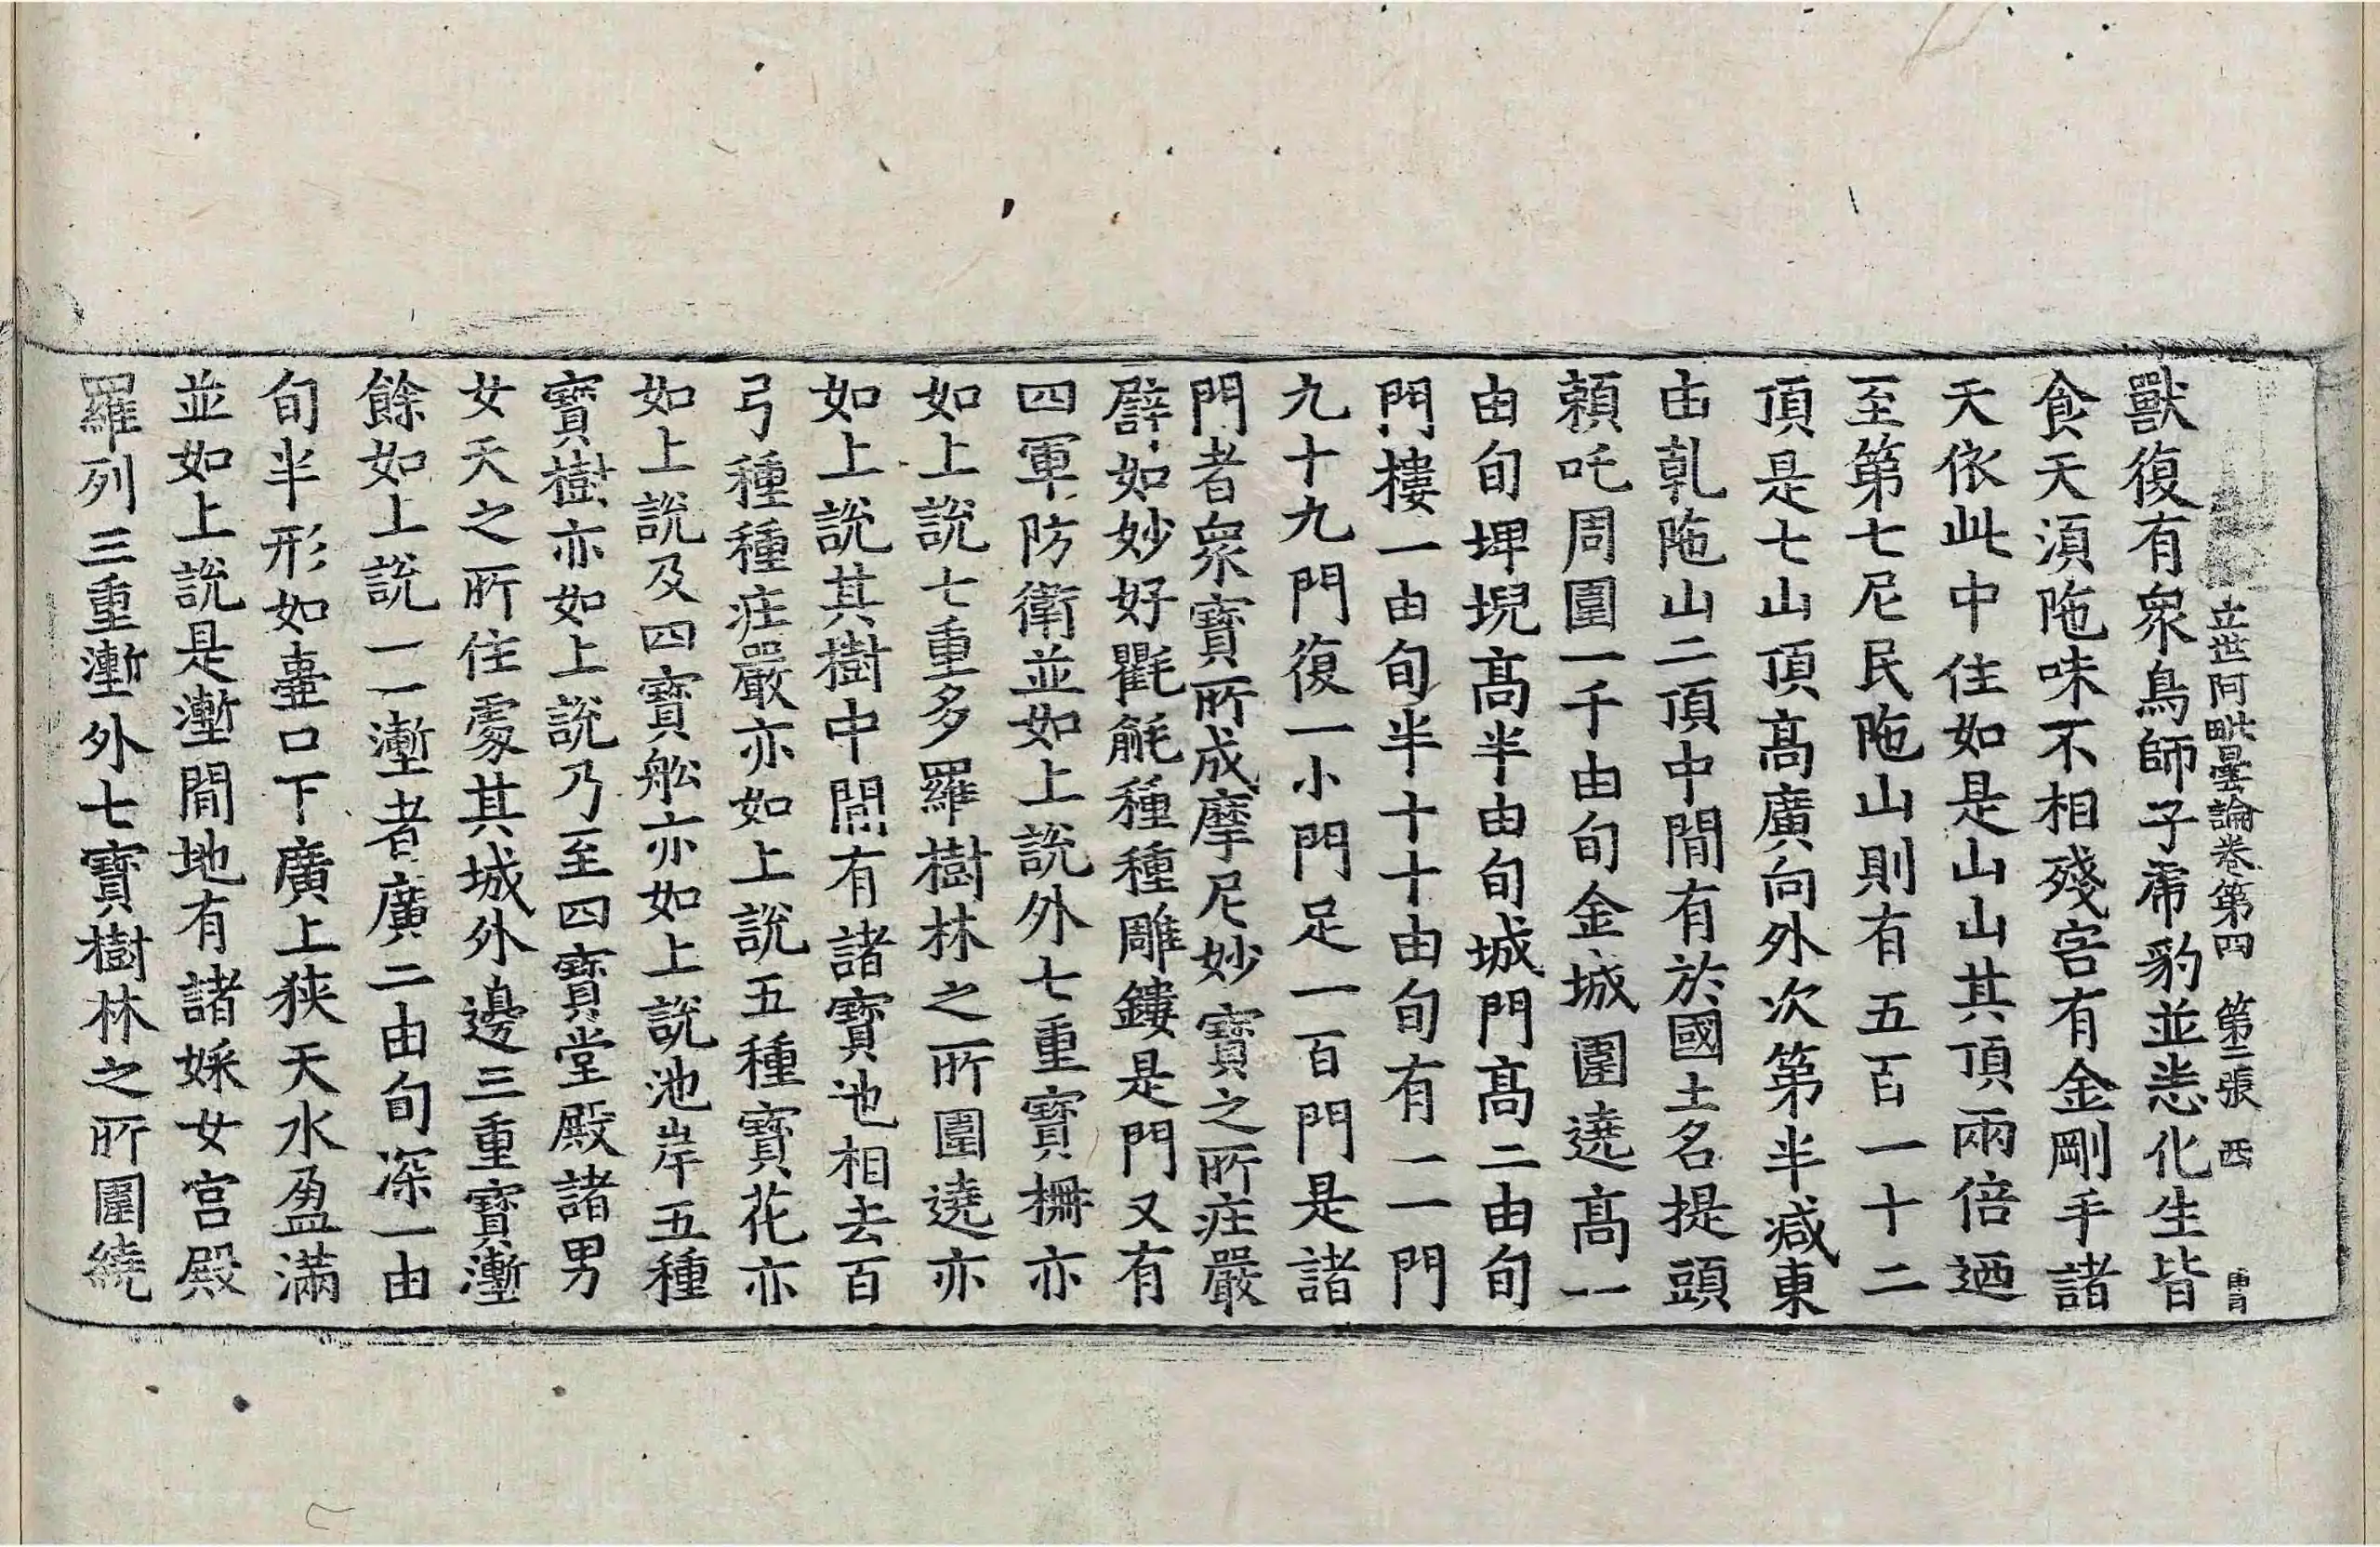 立世阿毗曇論卷第四　第二張　西
獸復有眾鳥師子虎豹並悉化生皆
食天湏陁味不相殘害有金剛手諸
天依此中住如是山山其頂兩倍迺
至第七尼民陁山則有五百一十二
頂是七山頂髙廣向外次第半减東
由乾陁山二頂中間有於國土名提頭
頼吒周圍一千由旬金城圍遶髙一
由旬埤堄髙半由旬城門髙二由旬
門樓一由旬半十十由旬有一一門
九十九門復一小門足一百門是諸
門者眾寶所成摩尼妙寶之所庄嚴
譬如妙好氍毹種種雕鏤是門又有
四軍防衛並如上說外七重寶柵亦
如上說七重多羅樹林之所圍遶亦
如上說其樹中間有諸寶池相去百
弓種種庄嚴亦如上說五種寶花亦
如上說及四寶舩亦如上說池岸五種
寶樹亦如上說乃至四寶堂殿諸男
女天之所住處其城外邊三重寶壍
餘如上說一一壍者廣二由旬深一由
旬半形如壷口下廣上狹天水盈滿
並如上說是壍間地有諸婇女宮殿
羅列三重壍外七寶樹林之所圍繞